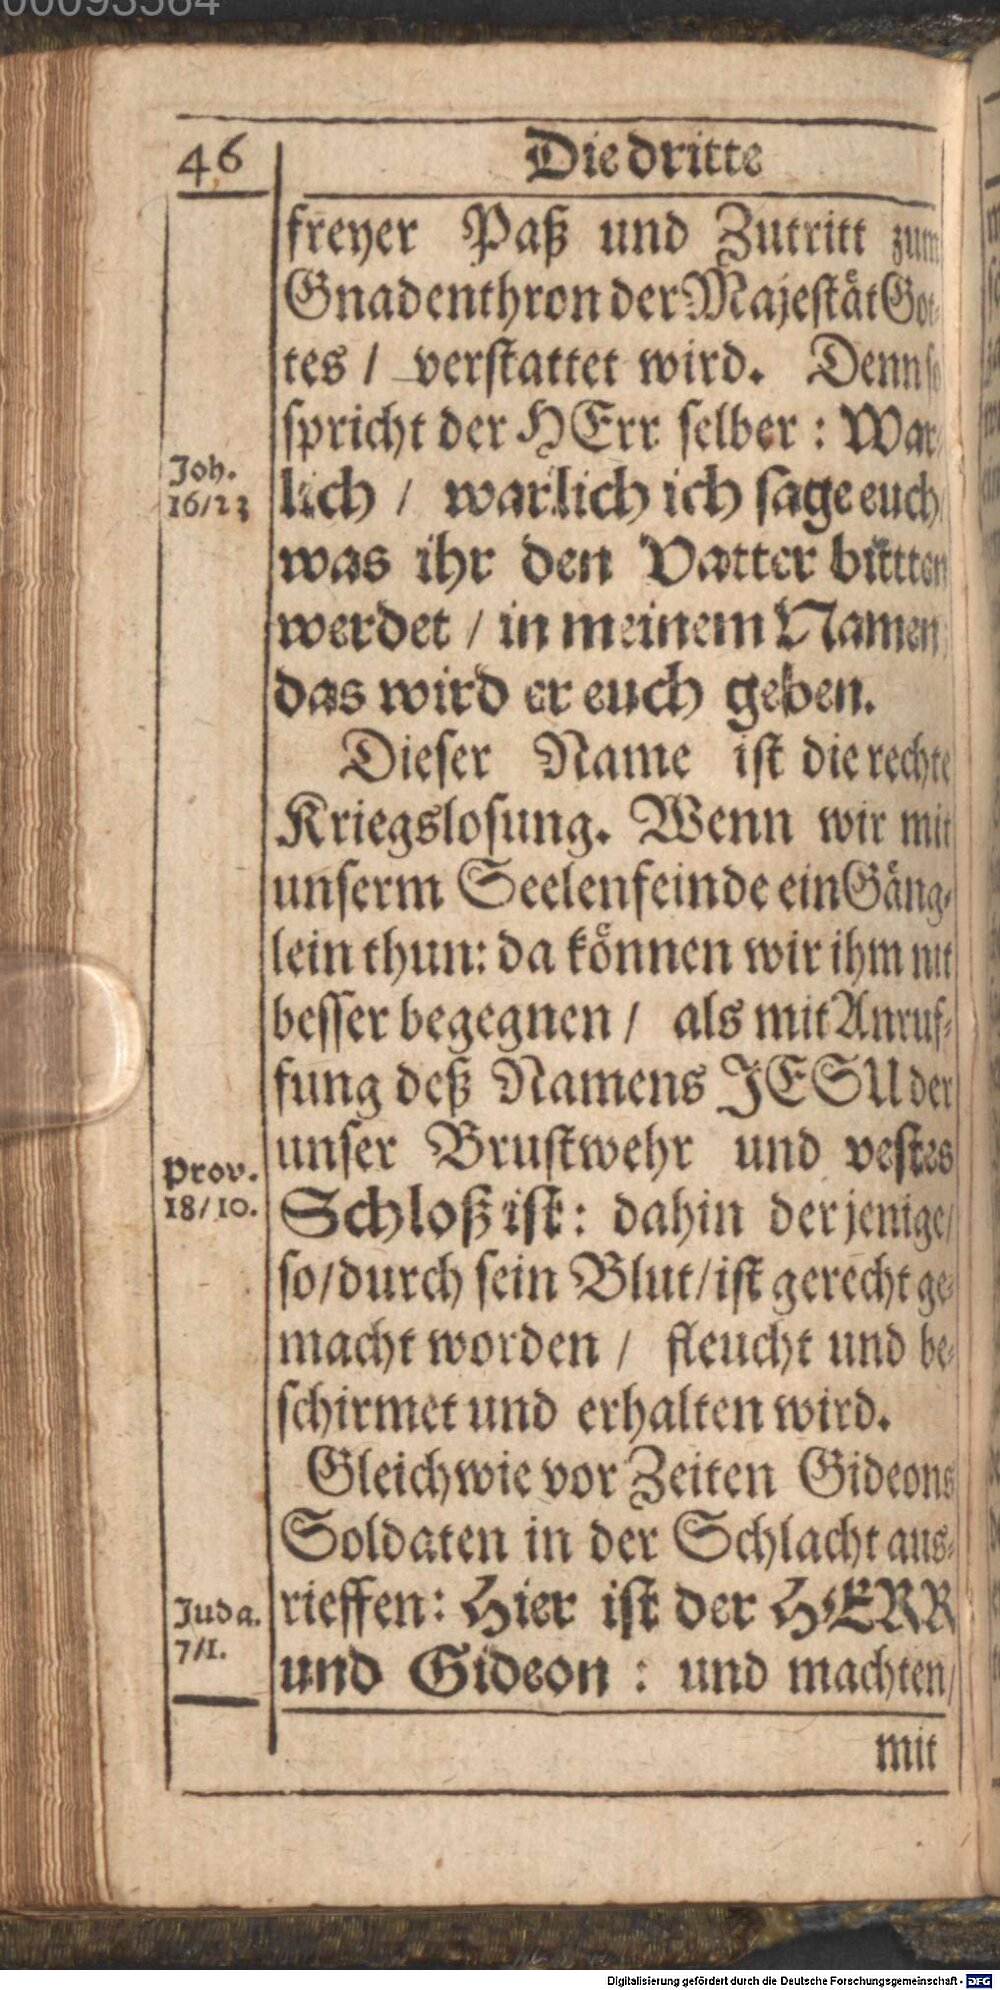 00093564
46
Die dritte
freyer Paß und Zutritt zum
Gnadenthron der Majestät Got-
tes / verstattet wird. Denn so
spricht der HErr selber : War-
Joh.
16/23
lich / warlich ich sage euch
was ihr den Vatter bitten
werdet / in meinem Namen
das wird er euch geben.
Dieser Name ist die rechte
Kriegslosung. Wenn wir mit
unserm Seelenfeinde ein Gäng-
lein thun: da können wir ihm nit
besser begegnen / als mit Anruf-
fung deß Namens JESU der
unser Brustwehr und vestes
Prov.
18/10.
Schloß ist: dahin der jenige/
so/durch sein Blut/ist gerecht ge-
macht worden / fleucht und be-
schirmet und erhalten wird.
Gleichwie vor Zeiten Gideons
Soldaten in der Schlacht aus-
Juda.
7/1.
rieffen: Hier ist der HERR
und Gideon : und machten/
mit
Digitalisierung gefördert durch die Deutsche Forschungsgemeinschaft - DFG